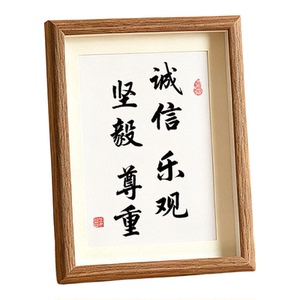 诚信 乐观
坚毅 尊重